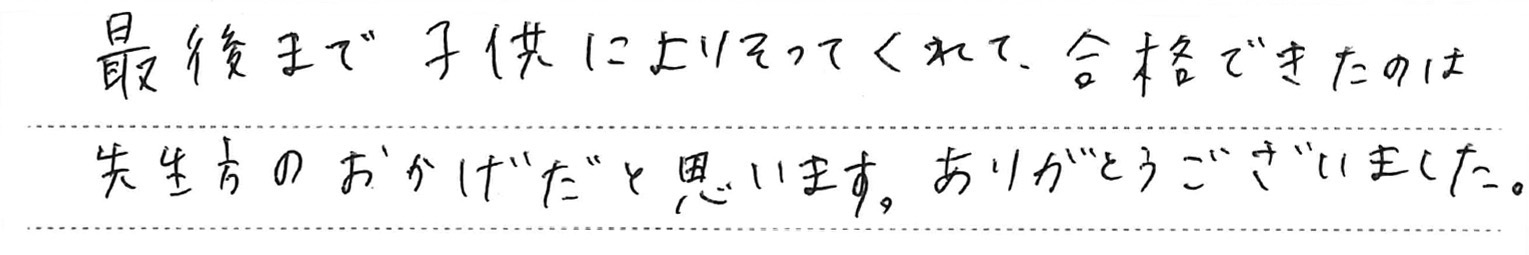 最後まで子供によりそってくれて、合格できたのは
先生方のおかげだと思います。ありがとうございました。